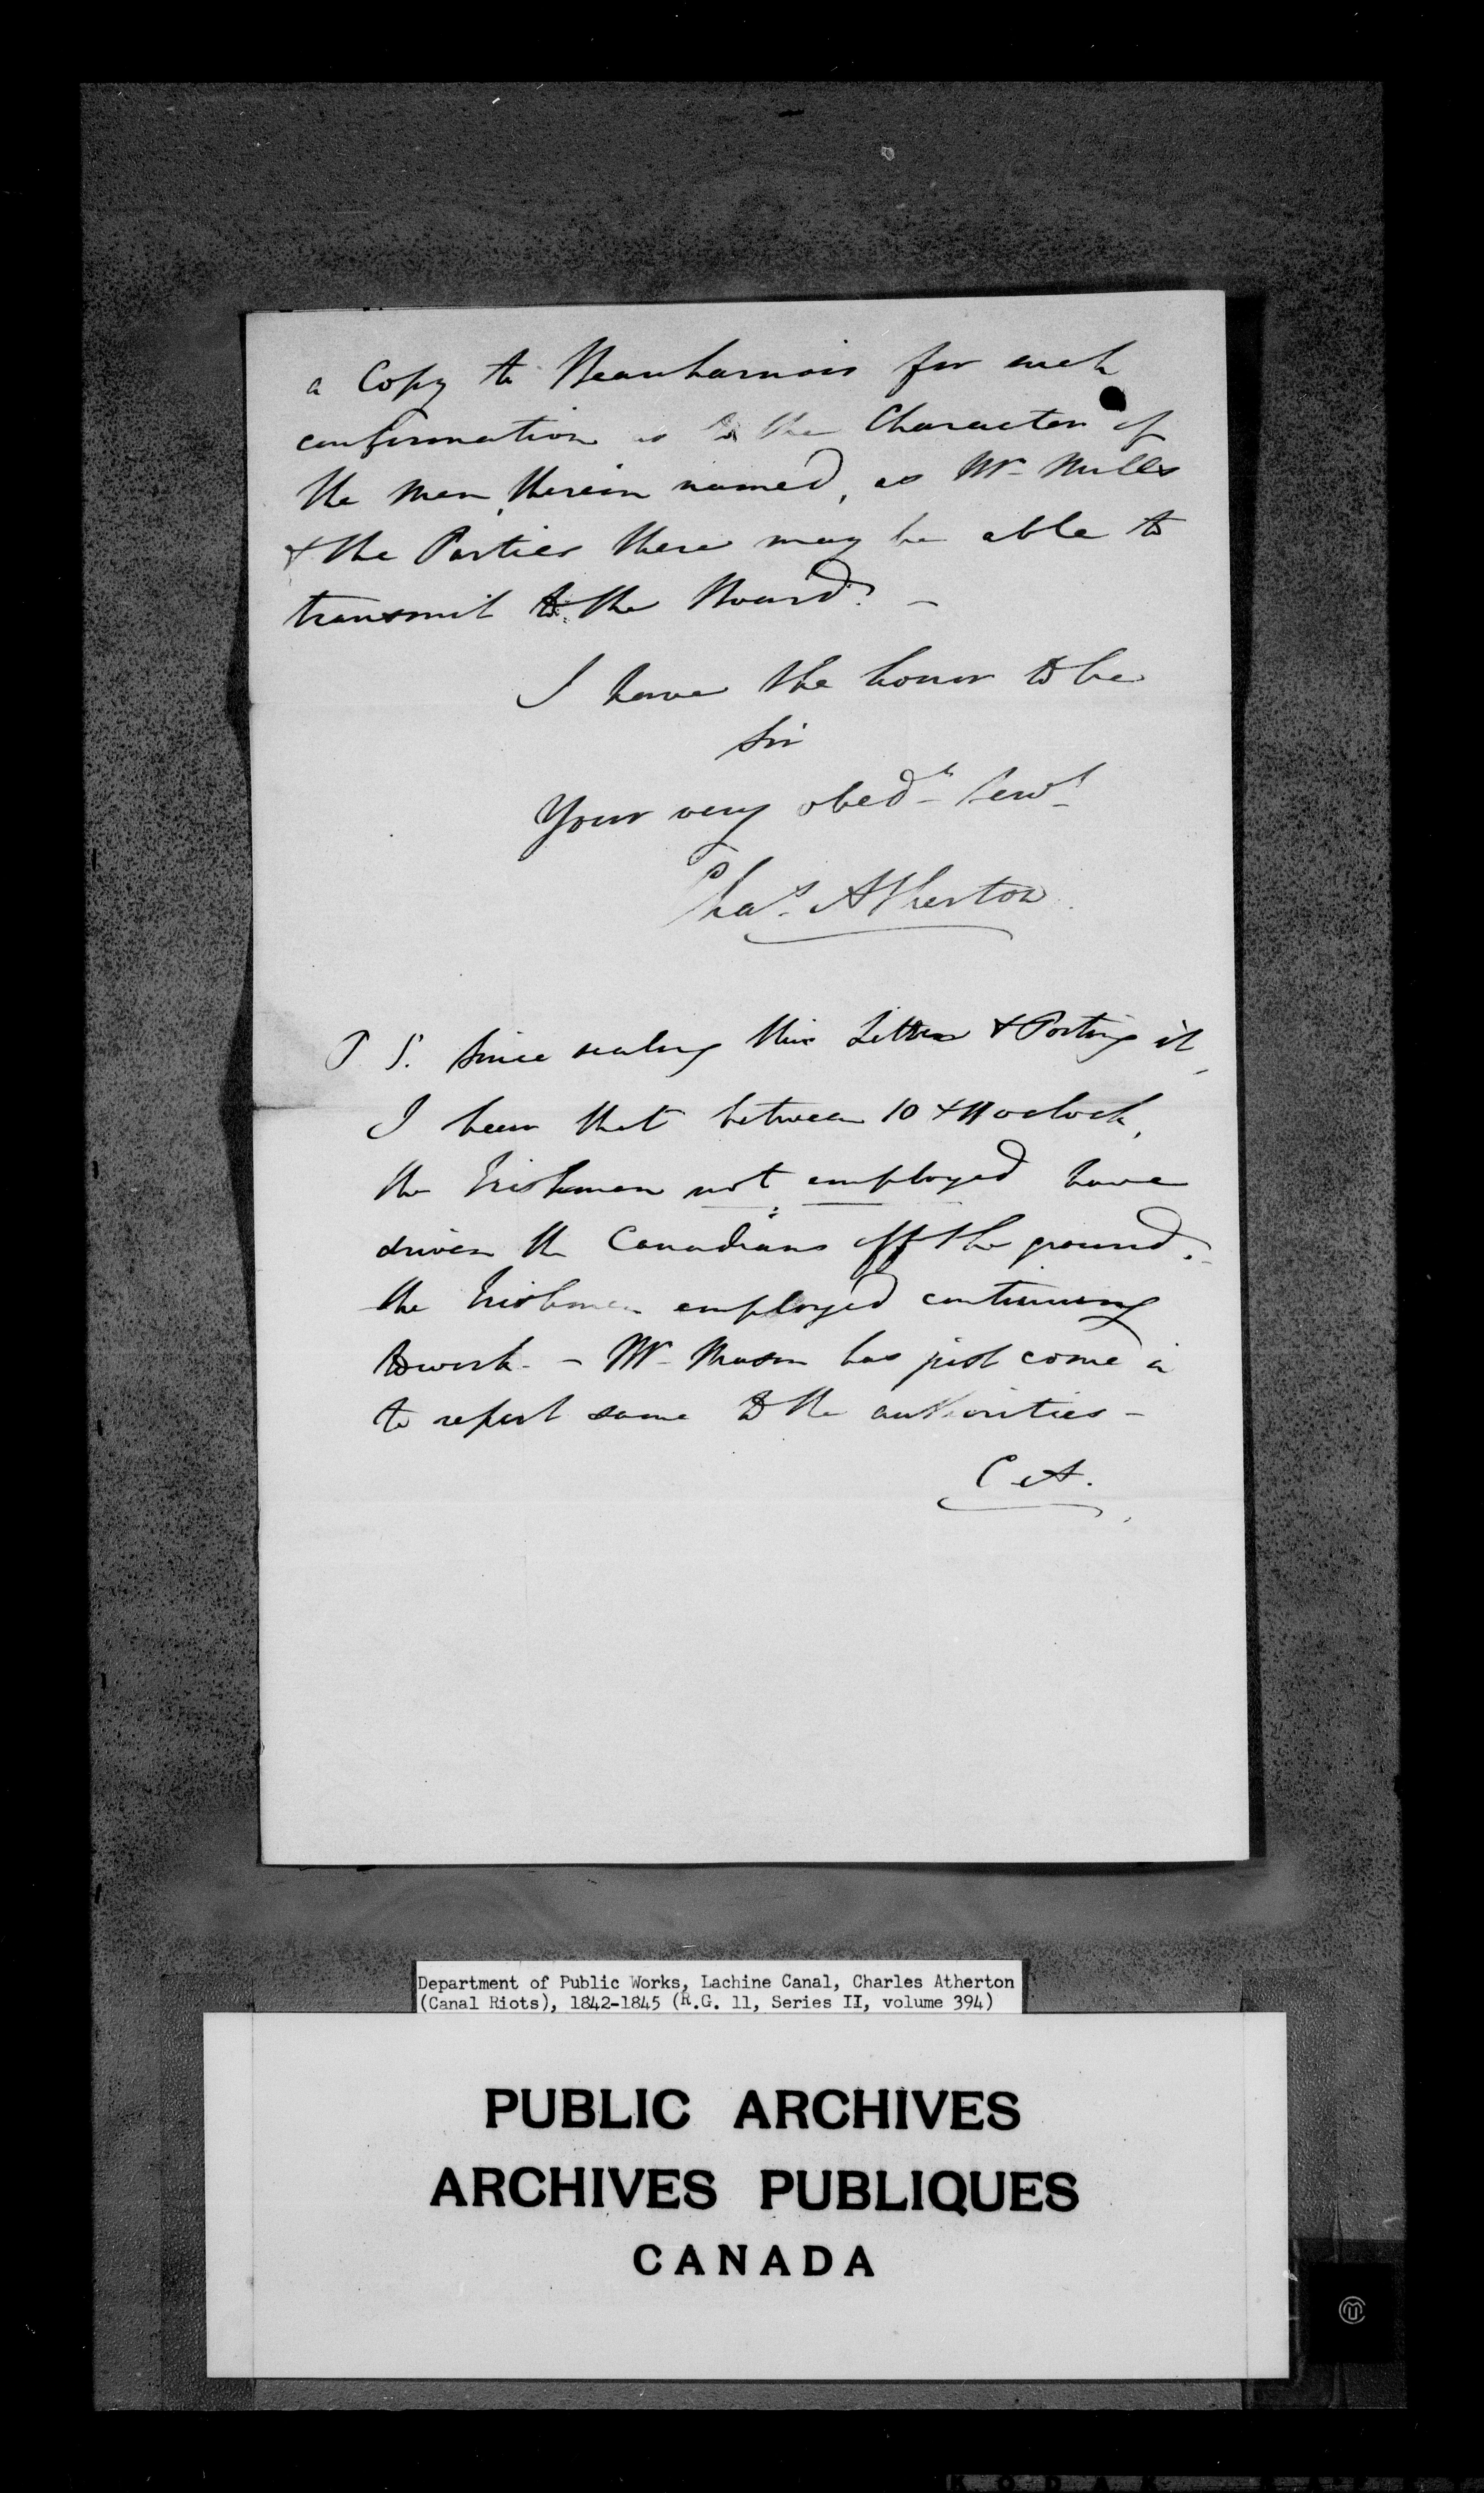 a Copy to Beauharnois for such
confirmation as to the Character of
the men, therein named, as Mr Mills
& the Parties there may be able to
transmit to the Board. —
I have the honor to be
Sir
Your very obedt Servt
Chas. Atherton
P S. Since sealing this Letter & Posting it,
I hear that between 10 & 11 oclock,
the Irishmen not employed have
driven the Canadians off the ground.
the Irishmen employed continuing
to work. — Mr Mason has just come in
to report same to the authorities —
C. A.
Department of Public Works, Lachine Canal, Charles Atherton
(Canal Riots), 1842-1845 (R.G. 11, Series II, volume 394)
PUBLIC ARCHIVES
ARCHIVES PUBLIQUES
CANADA